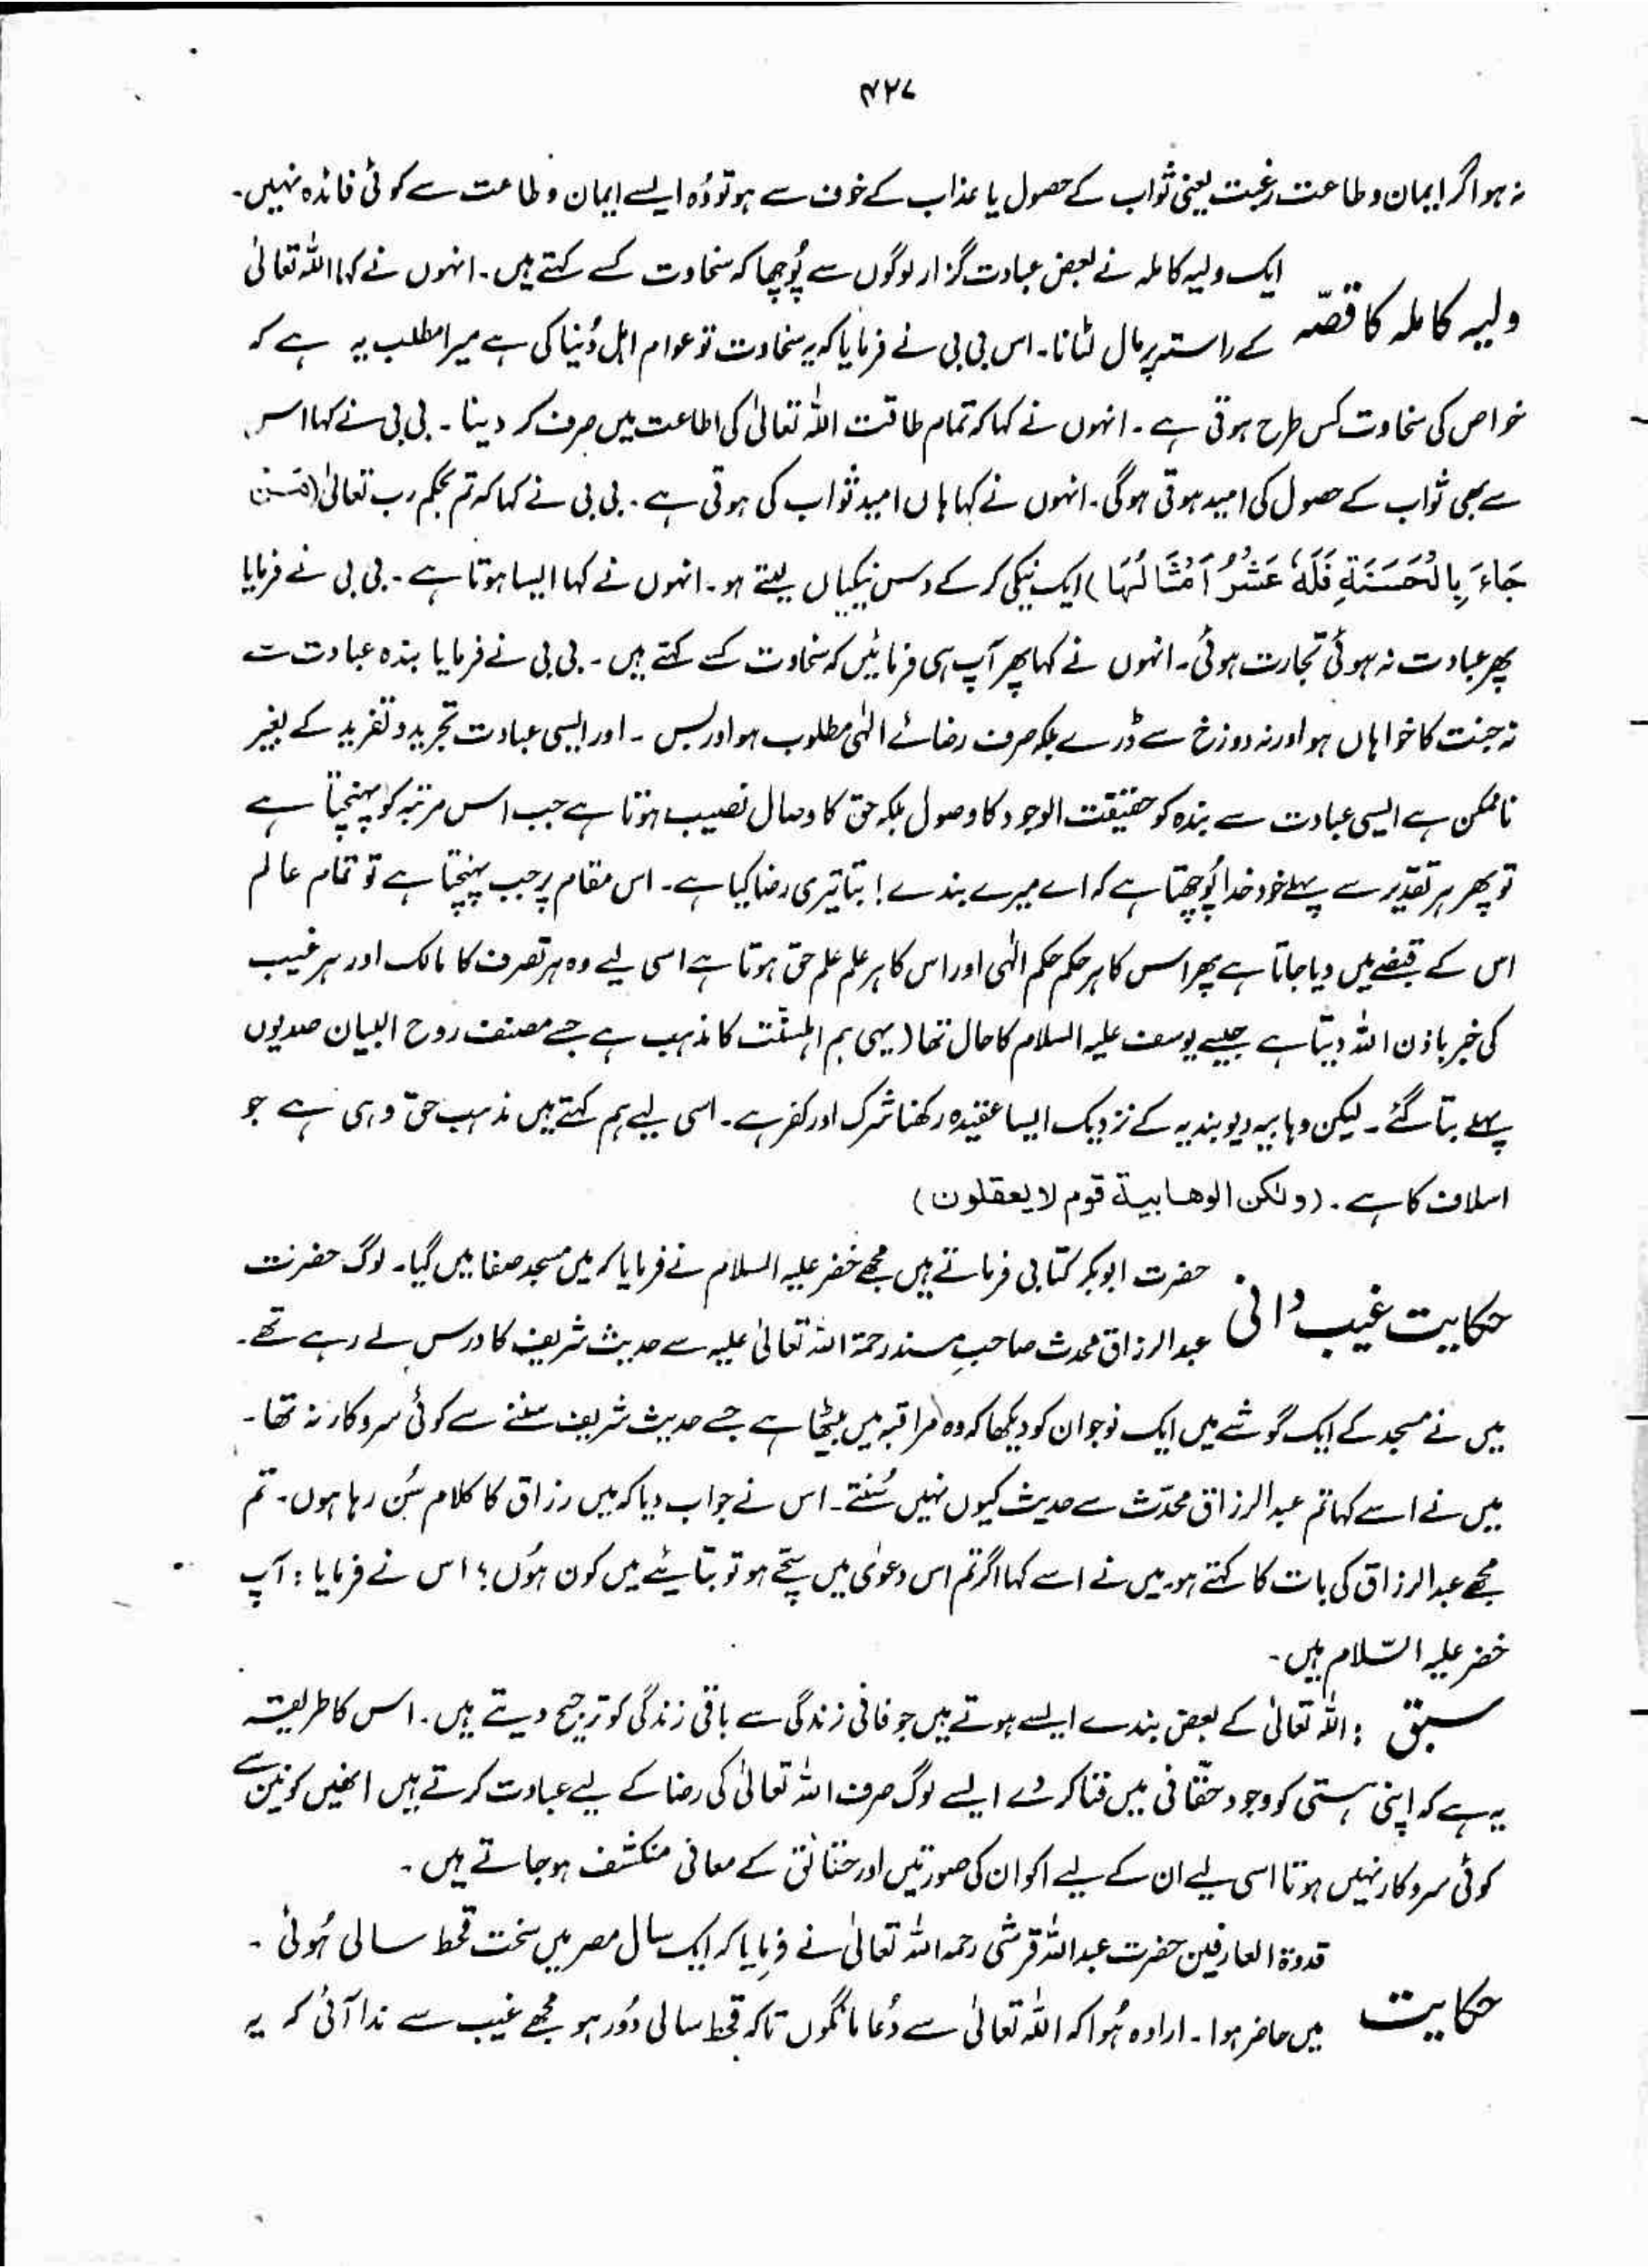 ۴۲۷
نہ ہو اگر ایمان و طاعت رغبت یعنی ثواب کے حصول یا عذاب کے خوف سے ہو تو وُہ ایسے ایمان و طاعت سے کوئی فائدہ نہیں۔
ولیہ کاملہ کا قصّہ
ایک ولیہ کاملہ نے بعض عبادت گزار لوگوں سے پُوچھا کہ سخاوت کسے کہتے ہیں۔ انہوں نے کہا اللہ تعالیٰ
کے راستہ پر مال لٹانا۔ اس بی بی نے فرمایا کہ یہ سخاوت تو عوام اہل دُنیا کی ہے میرا مطلب یہ ہے کہ
خواص کی سخاوت کس طرح ہوتی ہے۔ انہوں نے کہا کہ تمام طاقت اللہ تعالیٰ کی اطاعت میں صرف کر دینا۔ بی بی نے کہا اس
سے بھی ثواب کے حصول کی امید ہوتی ہوگی۔ انہوں نے کہا ہاں امید ثواب کی ہوتی ہے۔ بی بی نے کہا کہ تم بحکم رب تعالیٰ (مَنْ
جَاءَ بِالْحَسَنَةِ فَلَهٗ عَشْرُ اَمْثَالُہَا) ایک نیکی کر کے دس نیکیاں لیتے ہو۔ انہوں نے کہا ایسا ہوتا ہے۔ بی بی نے فرمایا
پھر عبادت نہ ہوئی تجارت ہوئی۔ انہوں نے کہا پھر آپ ہی فرمائیں کہ سخاوت کسے کہتے ہیں۔ بی بی نے فرمایا بندہ عبادت سے
نہ جنت کا خواہاں ہو اور نہ دوزخ سے ڈرے بلکہ صرف رضائے الٰہی مطلوب ہو اور بس۔ اور ایسی عبادت تجرید و تفرید کے بغیر
ناممکن ہے ایسی عبادت سے بندہ کو حقیقت الوجود کا وصول بلکہ حق کا وصال نصیب ہوتا ہے جب اس مرتبہ کو پہنچتا ہے
تو پھر ہر تقدیر سے پہلے خود خدا پُوچھتا ہے کہ اے میرے بندے! بتا تیری رضا کیا ہے۔ اس مقام پر جب پہنچتا ہے تو تمام عالم
اس کے قبضے میں دیا جاتا ہے پھر اس کا ہر حکم حکم الٰہی اور اس کا ہر علم علم حق ہوتا ہے اسی لیے وہ ہر تصرف کا مالک اور ہر غیب
کی خبر باذن اللہ دیتا ہے جیسے یوسف علیہ السلام کا حال تھا (یہی ہم اہلسنّت کا مذہب ہے جسے مصنف روح البیان صدیوں
پہلے بتا گئے۔ لیکن وہابیہ دیوبندیہ کے نزدیک ایسا عقیدہ رکھنا شرک اور کفر ہے۔ اسی لیے ہم کہتے ہیں مذہب حق وہی ہے جو
اسلاف کا ہے۔ (ولكن الوهابية قوم لا يعقلون)
حکایت غیب دانی
حضرت ابوبکر کتابی فرماتے ہیں مجھے خضر علیہ السلام نے فرمایا کہ میں مسجد صفا میں گیا۔ لوگ حضرت
عبدالرزاق محدث صاحبِ مسند رحمۃ اللہ تعالیٰ علیہ سے حدیث شریف کا درس لے رہے تھے۔
میں نے مسجد کے ایک گوشے میں ایک نوجوان کو دیکھا کہ وہ مراقبہ میں بیٹھا ہے جسے حدیث شریف سننے سے کوئی سروکار نہ تھا۔
میں نے اسے کہا تم عبدالرزاق محدّث سے حدیث کیوں نہیں سُنتے۔ اس نے جواب دیا کہ میں رزاق کا کلام سُن رہا ہوں۔ تم
مجھے عبدالرزاق کی بات کا کہتے ہو۔ میں نے اسے کہا اگر تم اس دعویٰ میں سچّے ہو تو بتایئے میں کون ہُوں؟ اس نے فرمایا: آپ
خضر علیہ السّلام ہیں۔
سبق : اللہ تعالیٰ کے بعض بندے ایسے ہوتے ہیں جو فانی زندگی سے باقی زندگی کو ترجیح دیتے ہیں۔ اس کا طریقہ
یہ ہے کہ اپنی ہستی کو وجود حقّانی میں فنا کر دے ایسے لوگ صرف اللہ تعالیٰ کی رضا کے لیے عبادت کرتے ہیں انھیں کونین سے
کوئی سروکار نہیں ہوتا اسی لیے ان کے لیے اکوان کی صورتیں اور حقائق کے معانی منکشف ہو جاتے ہیں۔
حکایت
قدوۃ العارفین حضرت عبداللہ قرشی رحمہ اللہ تعالیٰ نے فرمایا کہ ایک سال مصر میں سخت قحط سالی ہُوئی۔
میں حاضر ہوا۔ ارادہ ہُوا کہ اللہ تعالیٰ سے دُعا مانگوں تاکہ قحط سالی دُور ہو مجھے غیب سے ندا آئی کہ یہ